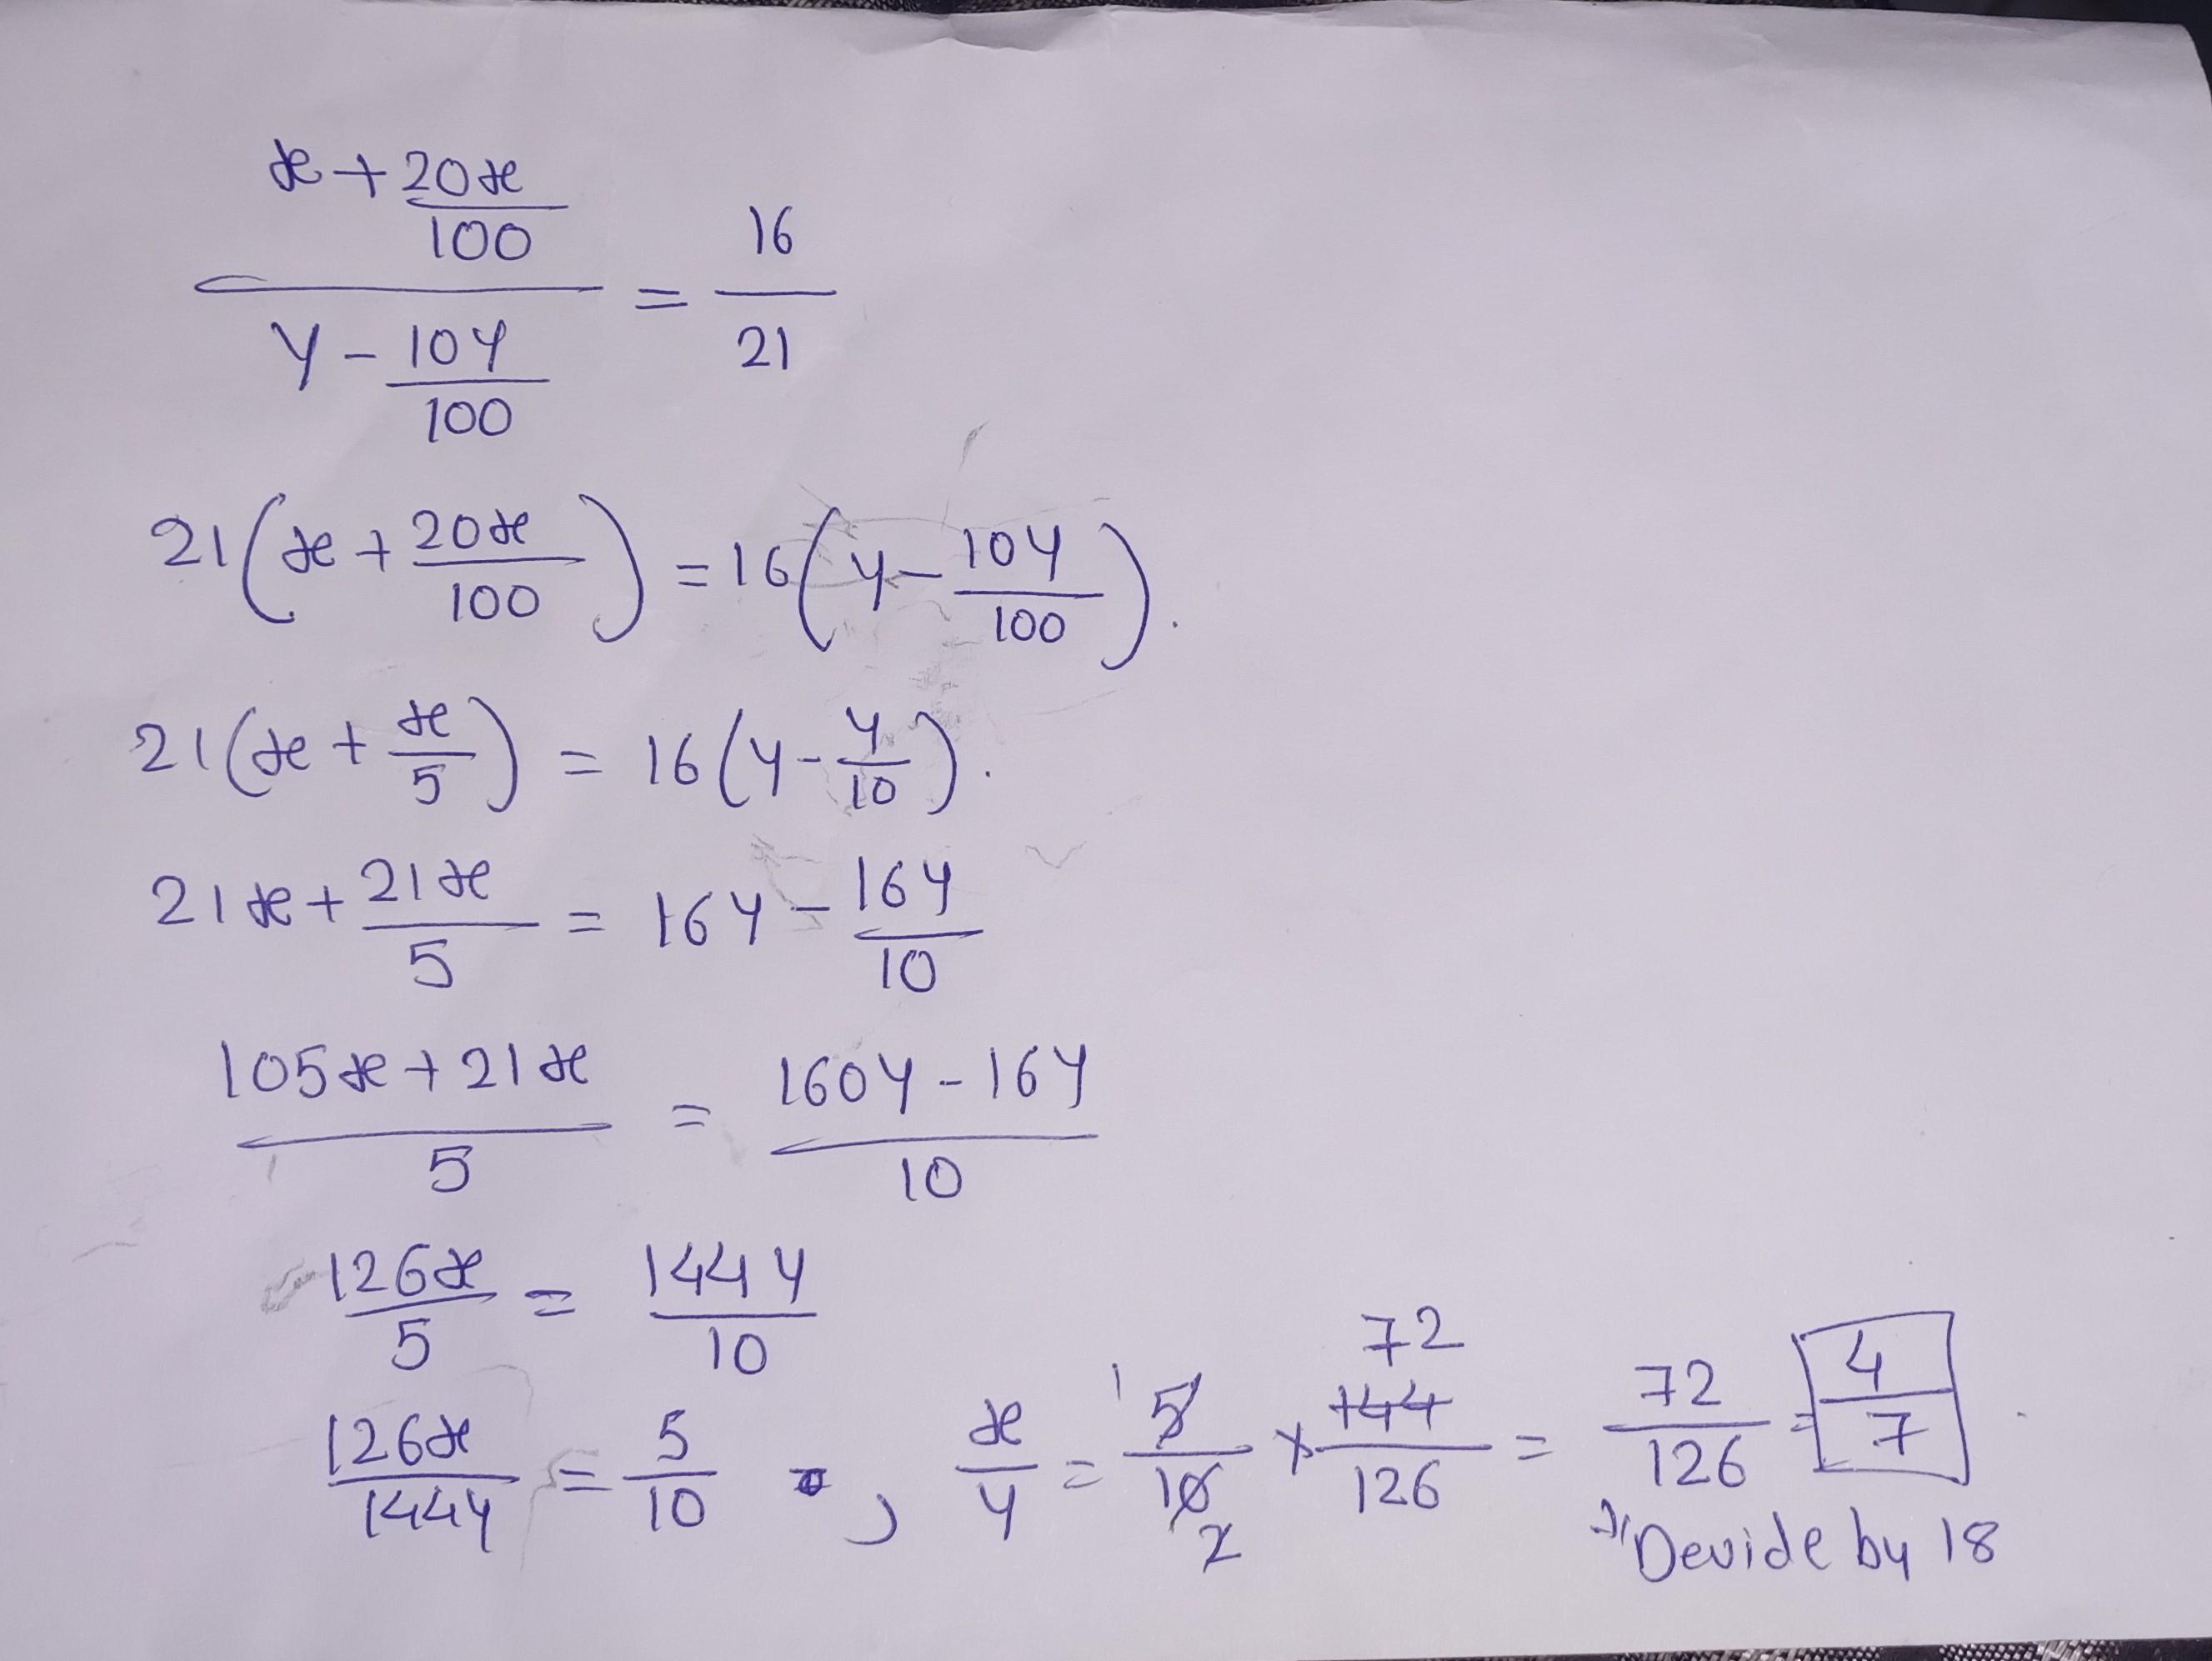 x + 20x
100
16
=
21
y - 10y
100
21(x + 20x/100) = 16(y - 10y/100).
21(x + x/5) = 16(y - y/10).
21x + 21x/5 = 16y - 16y/10
105x + 21x/5 = 160y - 16y/10
126x/5 = 144y/10
126x/144y = 5/10 , x/y = 1 5/10 2 × 72 144/126 = 72/126 = 4/7
Devide by 18